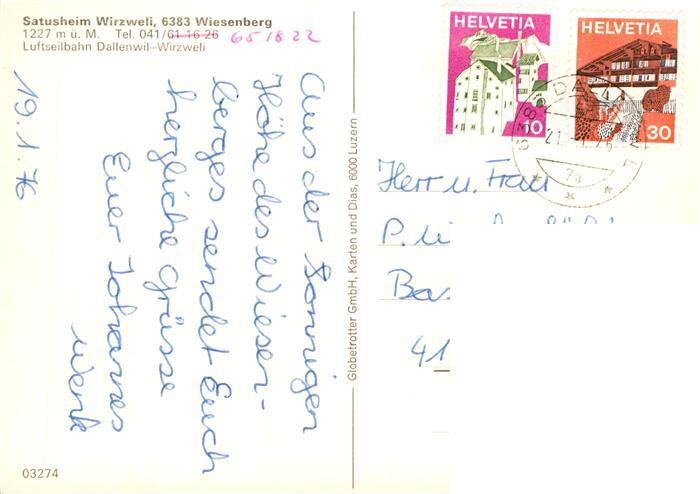 Satusheim Wirzweli, 6383 Wiesenberg
1227 m ü. M. Tel. 041/61 16 26 65 18 22
Luftseilbahn Dallenwil–Wirzweli
19.1.76
Aus der Sonnigen
Höhe des Wiesen-
berges sendet Euch
herzliche Grüsse
Euer Johannes
Werk
03274
Globetrotter GmbH, Karten und Dias, 6000 Luzern
HELVETIA
10
HELVETIA
30
Herr u. Frau
P.
Bas
41